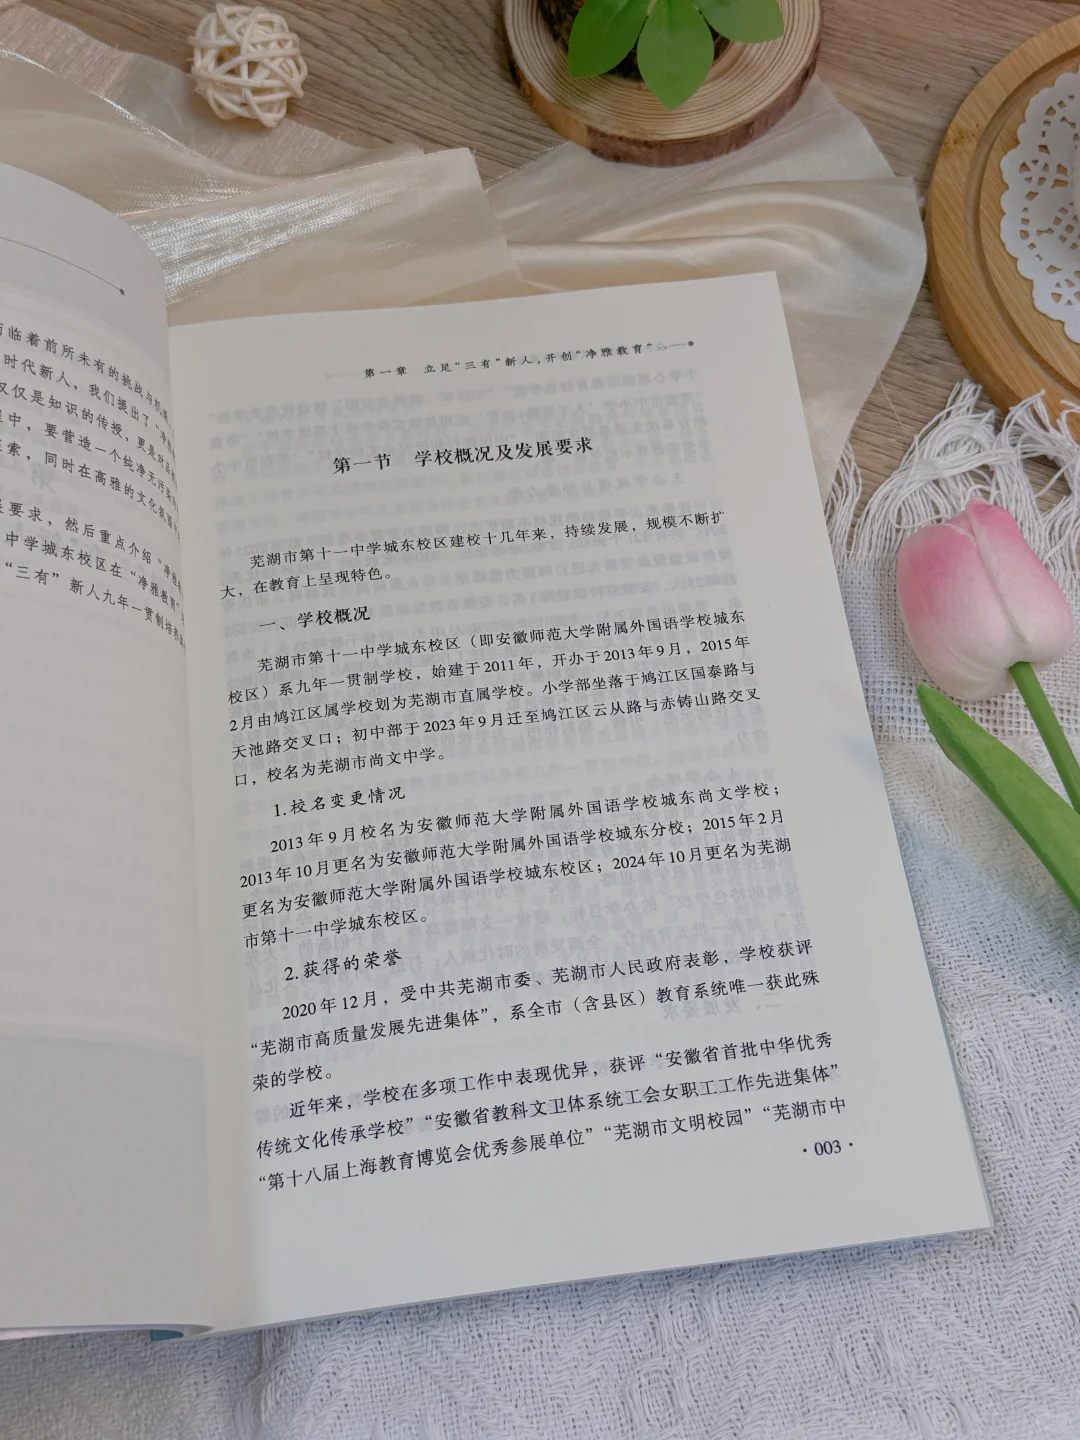 临着前所未有的挑战与机
时代新人，我们提出了“净
仅仅是知识的传授，更是对
中，要营造一个纯净无污
索，同时在高雅的文化氛围
要求，然后重点介绍“净雅
中学城东校区在“净雅教育”
“三有”新人九年一贯制培养
第一章 立足“三有”新人，开创“净雅教育”
第一节 学校概况及发展要求
芜湖市第十一中学城东校区建校十几年来，持续发展，规模不断扩
大，在教育上呈现特色。
一、学校概况
芜湖市第十一中学城东校区（即安徽师范大学附属外国语学校城东
校区）系九年一贯制学校，始建于2011年，开办于2013年9月，2015年
2月由鸠江区属学校划为芜湖市直属学校。小学部坐落于鸠江区国泰路与
天池路交叉口；初中部于2023年9月迁至鸠江区云从路与赤铸山路交叉
口，校名为芜湖市尚文中学。
1.校名变更情况
2013年9月校名为安徽师范大学附属外国语学校城东尚文学校；
2013年10月更名为安徽师范大学附属外国语学校城东分校；2015年2月
更名为安徽师范大学附属外国语学校城东校区；2024年10月更名为芜湖
市第十一中学城东校区。
2.获得的荣誉
2020年12月，受中共芜湖市委、芜湖市人民政府表彰，学校获评
“芜湖市高质量发展先进集体”，系全市（含县区）教育系统唯一获此殊
荣的学校。
近年来，学校在多项工作中表现优异，获评“安徽省首批中华优秀
传统文化传承学校”“安徽省教科文卫体系统工会女职工工作先进集体”
“第十八届上海教育博览会优秀参展单位”“芜湖市文明校园”“芜湖市中
·003·